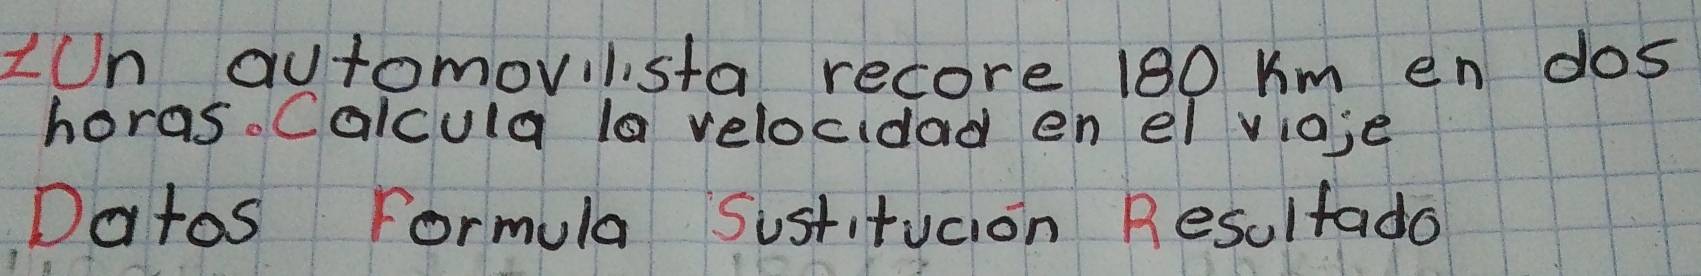 1Un automovilista recore 180 Km en dos
horas. Calcula la velocidad en el viaje
Datos Formula Sustitución Resultado